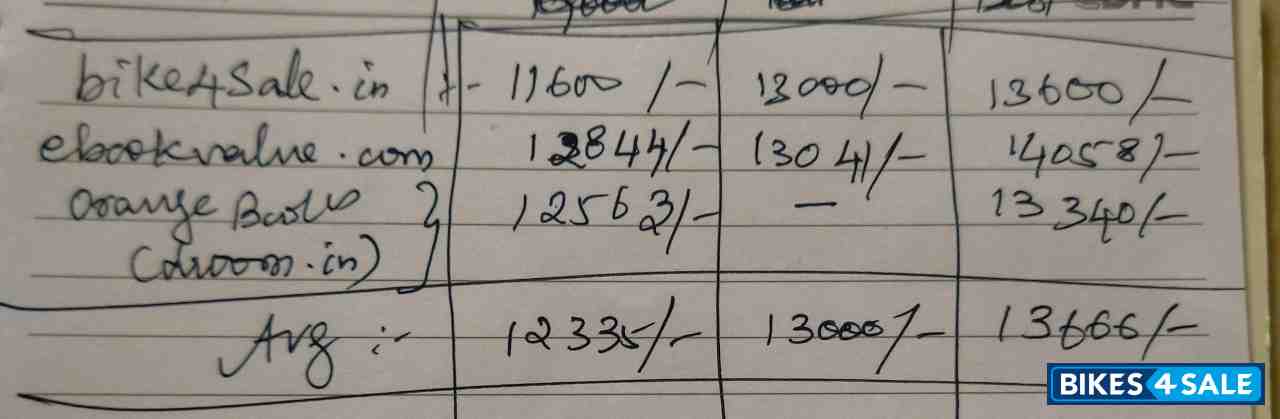 bike4Sale.in :- 11600/- 13000/- 13600/-
ebookvalue.com 12844/- 13041/- 14058/-
Orange Book 12563/- — 13340/-
(droom.in)
Avg :- 12335/- 13000/- 13666/-
BIKES 4 SALE